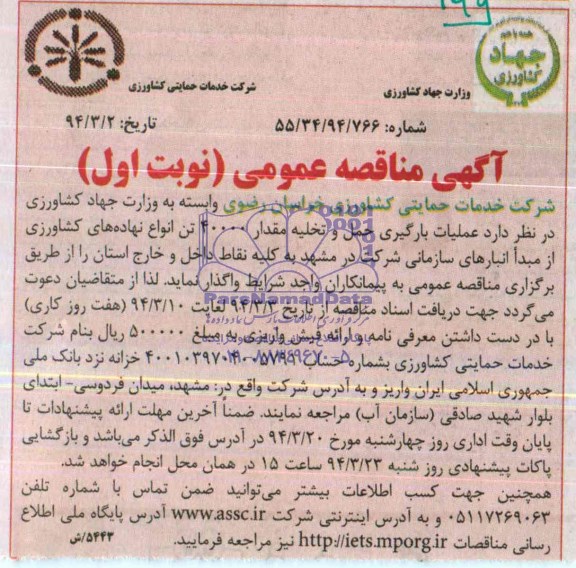 ۱۹۹
همه با هم
جهاد
کشاورزی
وزارت جهاد کشاورزی
شرکت خدمات حمایتی کشاورزی
شماره: ۵۵/۳۴/۹۴/۷۶۶
تاریخ: ۹۴/۳/۲
آگهی مناقصه عمومی (نوبت اول)
شرکت خدمات حمایتی کشاورزی خراسان رضوی وابسته به وزارت جهاد کشاورزی
در نظر دارد عملیات بارگیری حمل و تخلیه مقدار ۴۰۰۰۰ تن انواع نهاده‌های کشاورزی
از مبدأ انبارهای سازمانی شرکت در مشهد به کلیه نقاط داخل و خارج استان را از طریق
برگزاری مناقصه عمومی به پیمانکاران واجد شرایط واگذار نماید. لذا از متقاضیان دعوت
می‌گردد جهت دریافت اسناد مناقصه از تاریخ ۹۴/۳/۳ لغایت ۹۴/۳/۱۰ (هفت روز کاری)
با در دست داشتن معرفی نامه و ارائه فیش واریزی به مبلغ ۵۰۰۰۰۰ ریال بنام شرکت
خدمات حمایتی کشاورزی بشماره حساب خزانه نزد بانک ملی
جمهوری اسلامی ایران واریز و به آدرس شرکت واقع در: مشهد، میدان فردوسی- ابتدای
بلوار شهید صادقی (سازمان آب) مراجعه نمایند. ضمناً آخرین مهلت ارائه پیشنهادات تا
پایان وقت اداری روز چهارشنبه مورخ ۹۴/۳/۲۰ در آدرس فوق الذکر می‌باشد و بازگشایی
پاکات پیشنهادی روز شنبه ۹۴/۳/۲۳ ساعت ۱۵ در همان محل انجام خواهد شد.
همچنین جهت کسب اطلاعات بیشتر می‌توانید ضمن تماس با شماره تلفن
۰۵۱۱۷۲۶۹۰۶۳ و به آدرس اینترنتی شرکت www.assc.ir آدرس پایگاه ملی اطلاع
رسانی مناقصات http://iets.mporg.ir نیز مراجعه فرمایید.
۵۴۴۳/ش
ParsNamadData